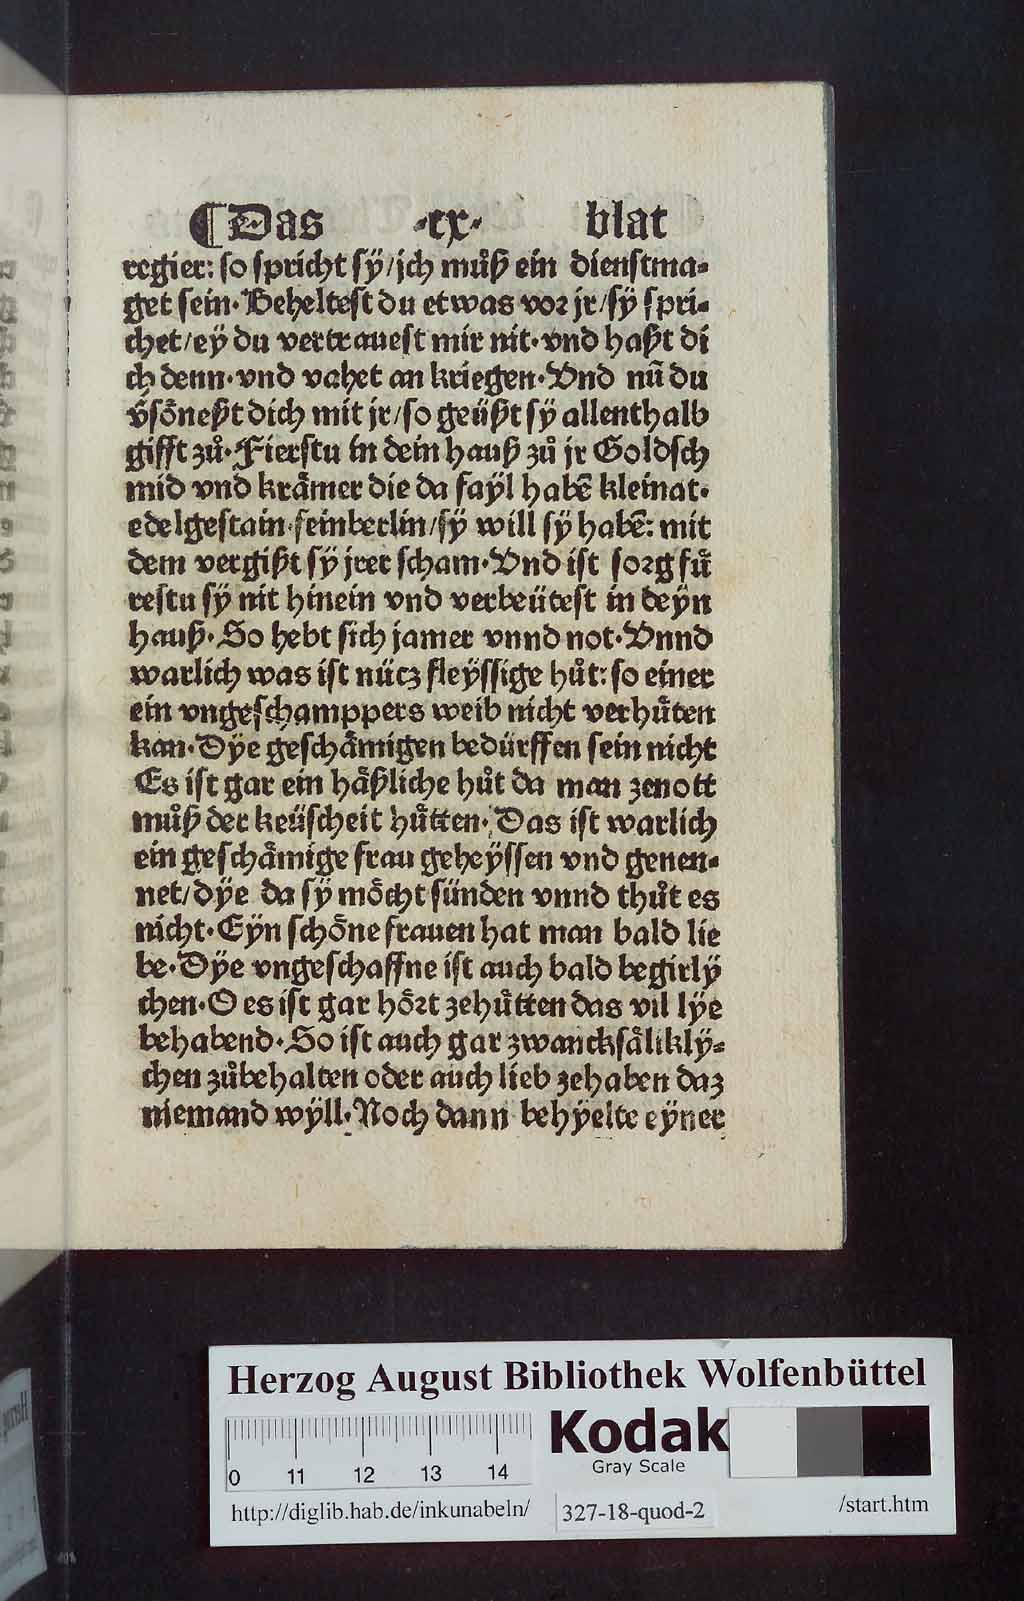 ¶Das ·xx· blat
regier: so spricht sÿ/jch můß ein dienstma⸗
get sein·Beheltest du etwas vor jr/sÿ spri⸗
chet/eÿ du vertrauest mir nit·vnd haßt di
ch denn·vnd vahet an kriegen·Vnd nū du
v̄sőneßt dich mit jr/so geüßt sÿ allenthalb
gifft zů·Fierstu in dein hauß zů jr Goldsch
mid vnd kråmer die da faÿl habē kleinat·
edelgestain·feinberlin/sÿ will sÿ habē: mit
dem vergißt sÿ jrer scham·Vnd ist sorg fů
restu sÿ nit hinein vnd verbeütest in deÿn
hauß·So hebt sich jamer vnnd not·Vnnd
warlich was ist nücz fleÿssige hůt: so einer
ein vngeschamppers weib nicht verhůten
kan·Dÿe geschåmigen bedürffen sein nicht
Es ist gar ein håßliche hůt da man zenott
můß der keüscheit hůtten·Das ist warlich
ein geschåmige frau geheÿssen vnd genen⸗
net/dÿe da sÿ möcht sünden vnnd thůt es
nicht·Eÿn schöne frauen hat man bald lie
be·Dÿe vngeschaffne ist auch bald begirlÿ
chen·O es ist gar hört zehůtten das vil lÿe
behabend·So ist auch gar zwancksåliklÿ⸗
chen zůbehalten oder auch lieb zehaben daz
niemand wÿll·Noch dann behÿelte eÿner
Herzog August Bibliothek Wolfenbüttel
0 11 12 13 14
Kodak
Gray Scale
http://diglib.hab.de/inkunabeln/ 327-18-quod-2 /start.htm